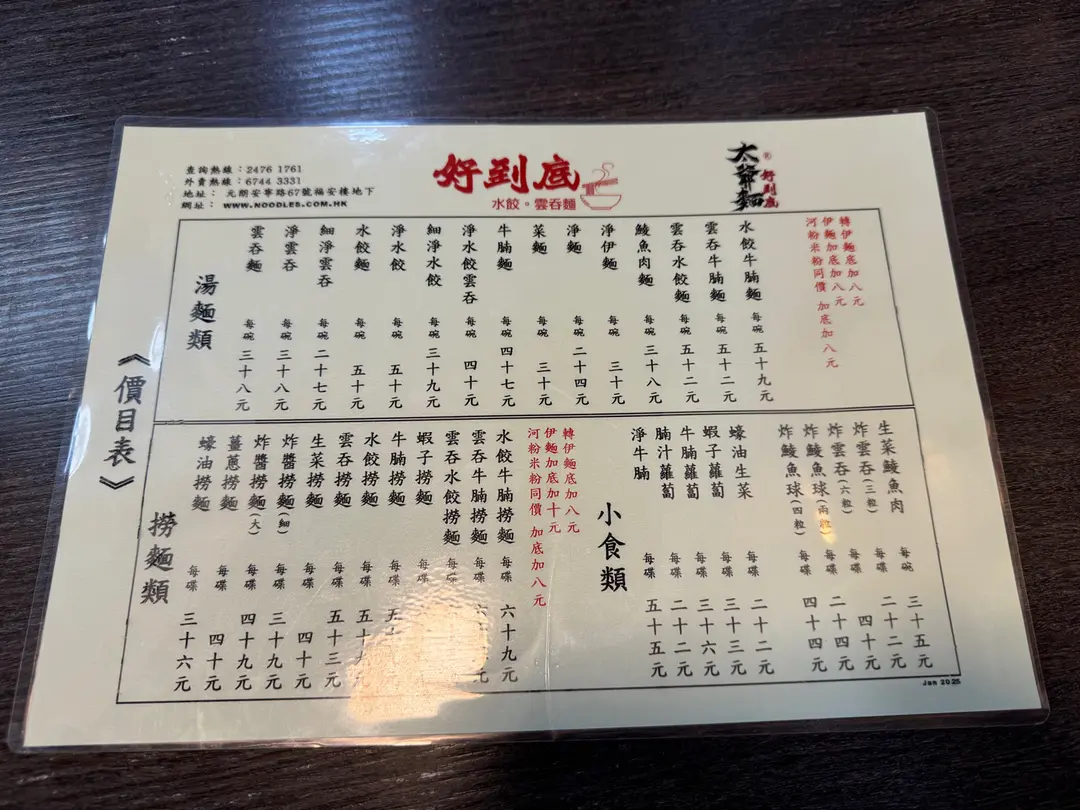 查詢熱線：2476 1761
外賣熱線：6744 3331
地址： 元朗安寧路67號福安樓地下
網址： WWW.NOODLES.COM.HK
好到底
水餃。雲吞麵
太爺麵
®好到底
《價目表》
湯麵類
雲吞麵 每碗 三十八元
淨雲吞 每碗 三十八元
細淨雲吞 每碗 二十七元
水餃麵 每碗 五十元
淨水餃 每碗 五十元
細淨水餃 每碗 三十九元
淨水餃雲吞 每碗 四十元
牛腩麵 每碗 四十七元
菜麵 每碗 三十元
淨麵 每碗 二十四元
淨伊麵 每碗 三十元
鯪魚肉麵 每碗 三十八元
雲吞水餃麵 每碗 五十二元
雲吞牛腩麵 每碗 五十二元
水餃牛腩麵 每碗 五十九元
轉伊麵底加八元
伊麵加底加八元
河粉米粉同價 加底加八元
撈麵類
蠔油撈麵 每碟 三十六元
薑蔥撈麵 每碟 四十元
炸醬撈麵(大) 每碟 四十九元
炸醬撈麵(細) 每碟 三十九元
生菜撈麵 每碟 四十元
雲吞撈麵 每碟 五十三元
水餃撈麵 每碟 五十
牛腩撈麵 每碟 五十
蝦子撈麵 每碟
雲吞水餃撈麵 每碟
雲吞牛腩撈麵 每碟 元
水餃牛腩撈麵 每碟 六十九元
轉伊麵底加八元
伊麵加底加十元
河粉米粉同價 加底加八元
小食類
淨牛腩 每碟 五十五元
腩汁蘿蔔 每碟 二十二元
牛腩蘿蔔 每碟 三十六元
蝦子蘿蔔 每碟 三十三元
蠔油生菜 每碟 二十二元
炸鯪魚球(四粒) 每碟 四十四元
炸鯪魚球(兩粒) 每碟 二十四元
炸雲吞(六粒) 每碟 四十元
炸雲吞(三粒) 每碟 二十二元
生菜鯪魚肉 每碗 三十五元
Jan 2025